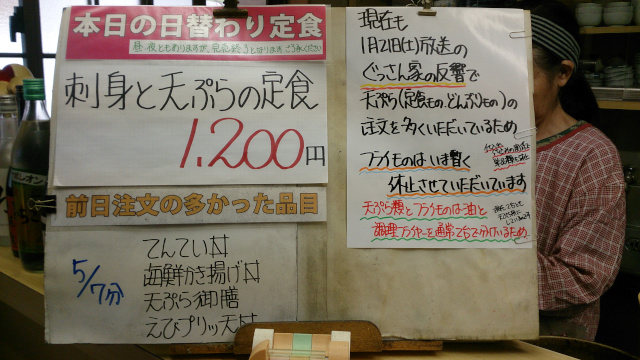 本日の日替わり定食
刺身と天ぷらの定食
1,200円
前日注文の多かった品目
5/7分
てんてい丼
海鮮かき揚げ丼
天ぷら御膳
えびプリッ天丼
現在も
1月21日(土)放送の
ぐっさん家の反響で
天ぷら(定食もの、どんぶりもの)の
注文を多くいただいているため
フライものはいま暫く
休止させていただいています
天ぷら類とフライものは油と
調理フライヤーを通常でも分けているため